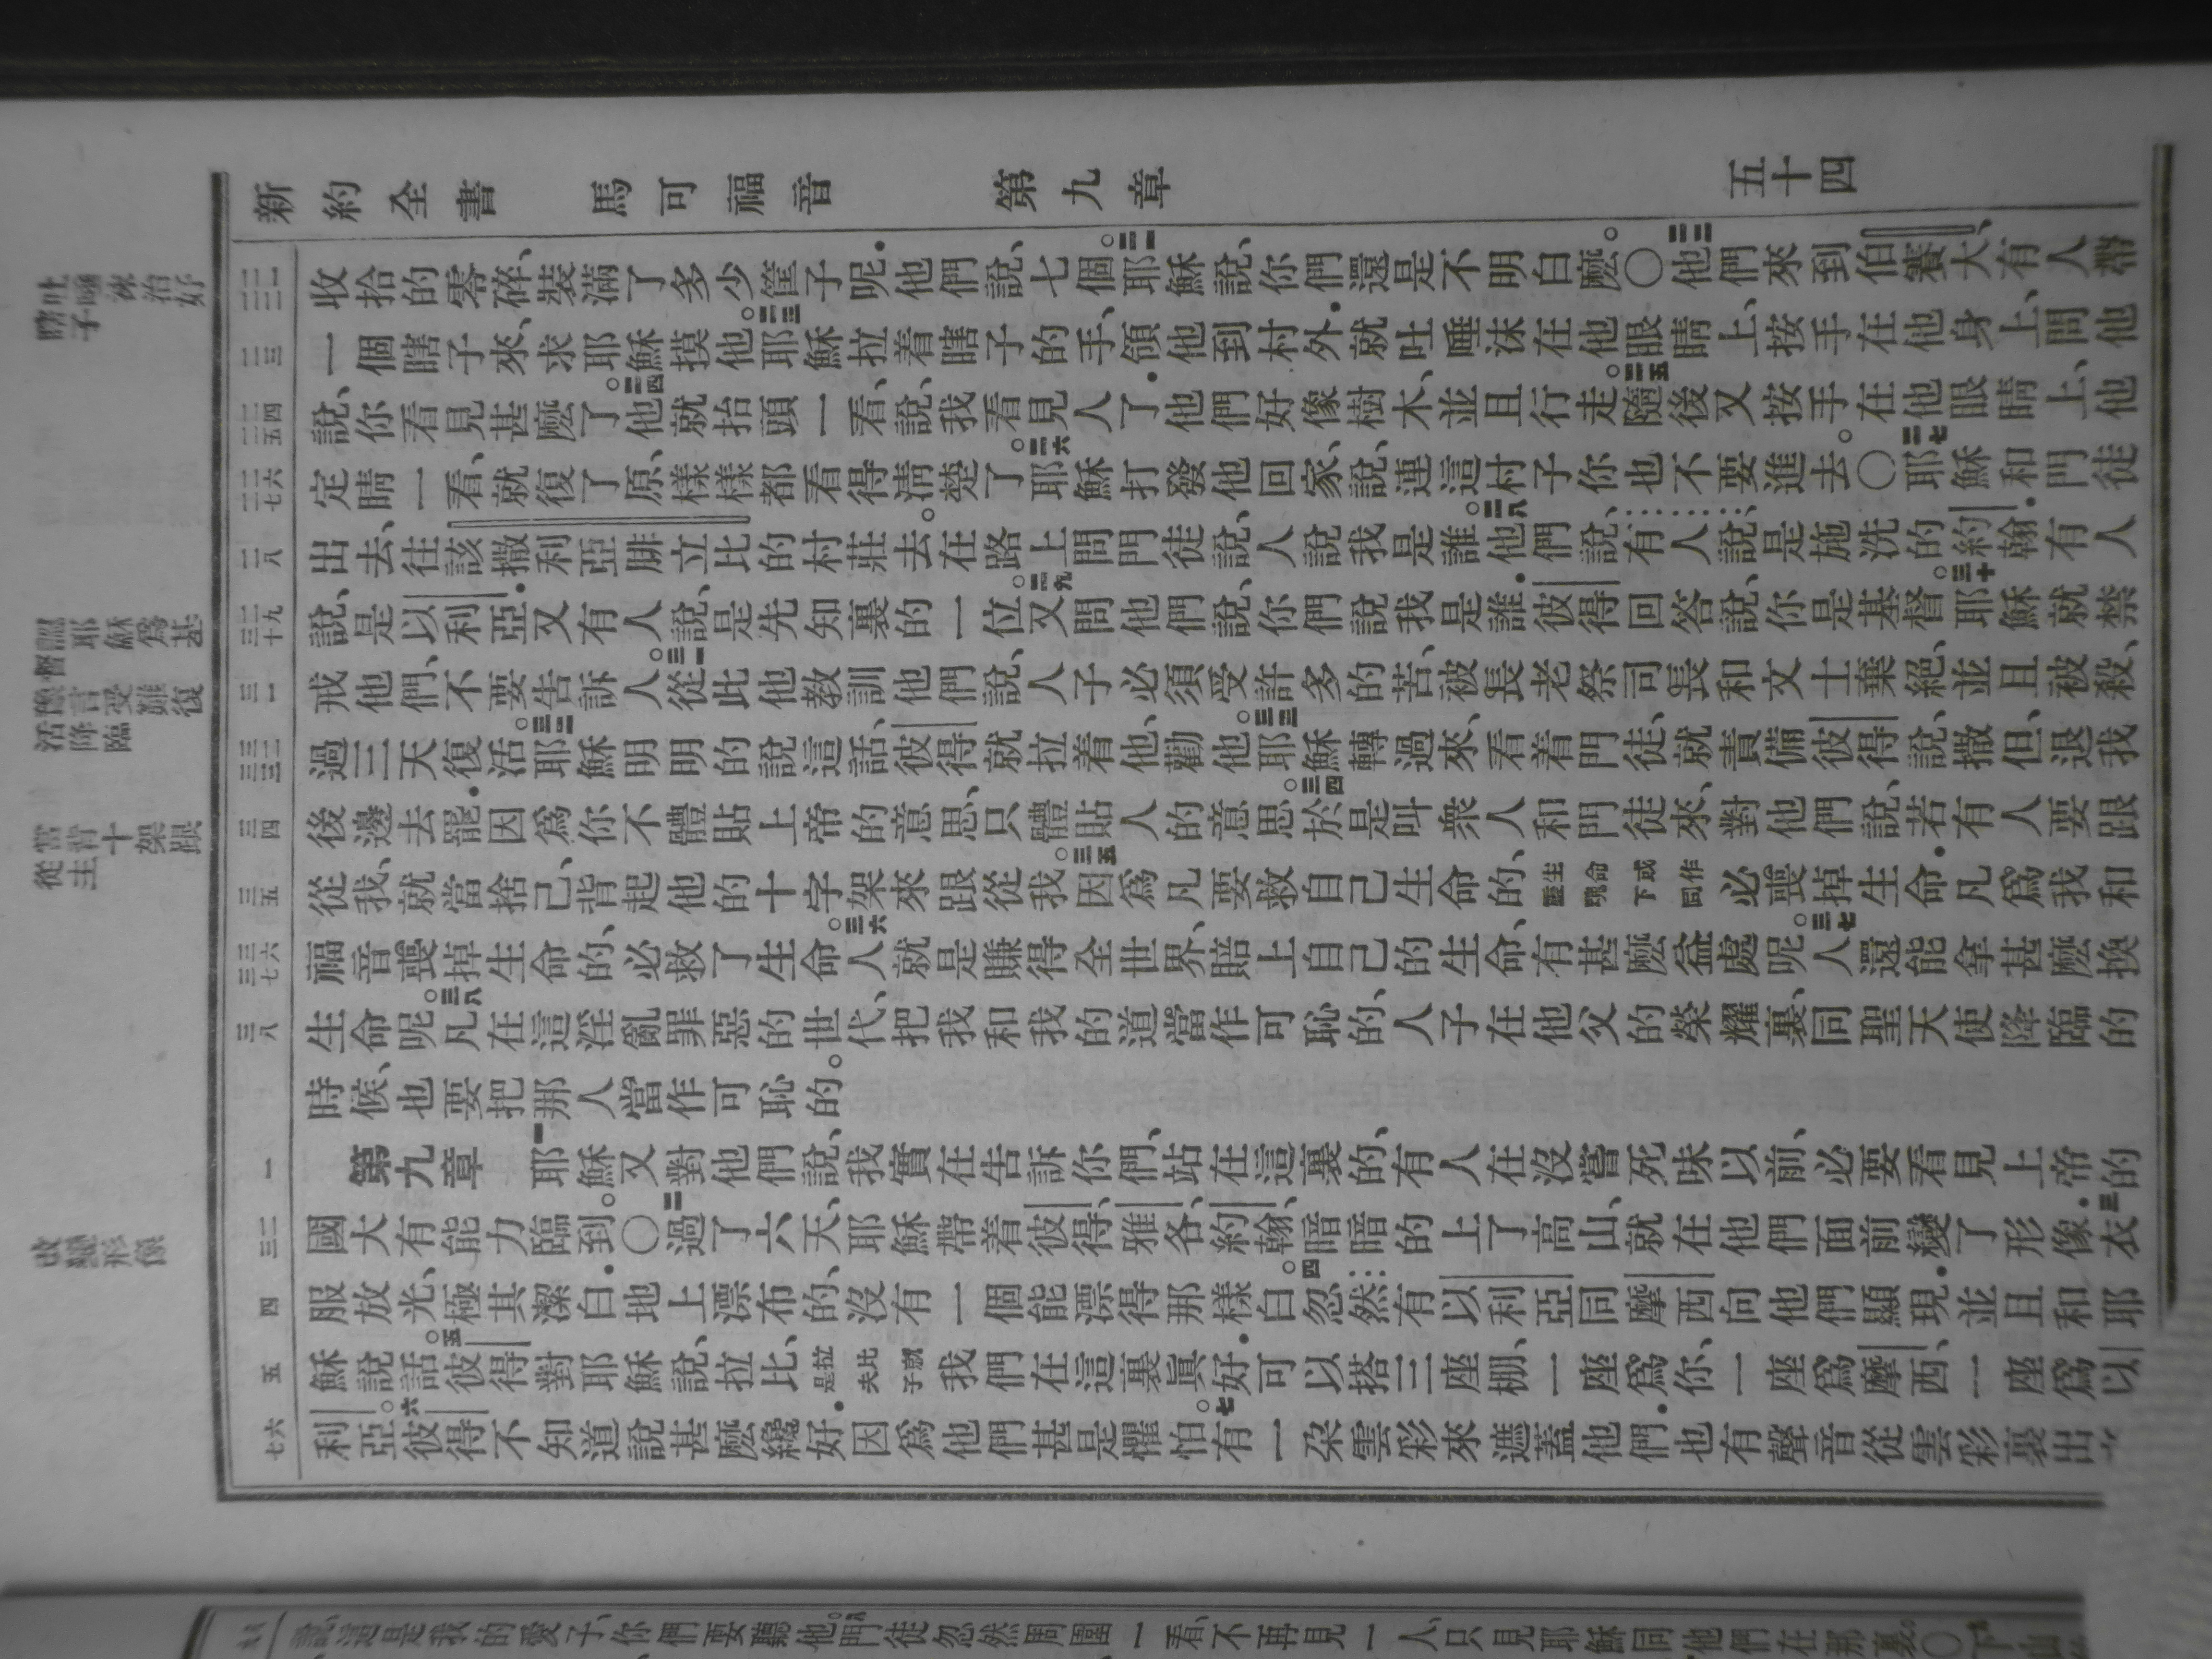 新約全書 馬可福音 第九章 五十四
吐唾沫治好瞎子
認耶穌爲基督
豫言受難復活降臨
當背十架跟從主
改變形像
二十一 二十二
收拾的零碎、裝滿了多少筐子呢.他們說、七個。二一耶穌說、你們還是不明白麽。〇二二他們來到伯賽大、有人帶
二三
一個瞎子來、求耶穌摸他。二三耶穌拉着瞎子的手、領他到村外.就吐唾沫在他眼睛上、按手在他身上、問他
二四 二五
說、你看見甚麽了。二四他就抬頭一看、說、我看見人了.他們好像樹木、並且行走。二五隨後又按手在他眼睛上、他
二六 二七
定睛一看、就復了原、樣樣都看得淸楚了。二六耶穌打發他回家、說、連這村子你也不要進去。〇二七耶穌和門徒
二八
出去、往該撒利亞腓立比的村莊去。在路上問門徒說、人說我是誰。二八他們說、有人說是施洗的約翰.有人
二九 三十
說、是以利亞.又有人說、是先知裏的一位。二九又問他們說、你們說我是誰.彼得回答說、你是基督。三十耶穌就禁
三一
戒他們、不要告訴人。三一從此他教訓他們說、人子必須受許多的苦、被長老祭司長和文士棄絕、並且被殺、
三二 三三
過三天復活。三二耶穌明明的說這話、彼得就拉着他、勸他。三三耶穌轉過來、看着門徒、就責備彼得說、撒但、退我
三四
後邊去罷.因爲你不體貼上帝的意思、只體貼人的意思。三四於是叫衆人和門徒來、對他們說、若有人要跟
三五
從我、就當捨己、背起他的十字架來跟從我。三五因爲凡要救自己生命的、生命或作靈魂下同必喪掉生命.凡爲我和
三六 三七
福音喪掉生命的、必救了生命。三六人就是賺得全世界、賠上自己的生命、有甚麽益處呢。三七人還能拿甚麽換
三八
生命呢。三八凡在這淫亂罪惡的世代、把我和我的道當作可恥的、人子在他父的榮耀裏、同聖天使降臨的
時候、也要把那人當作可恥的。
一
第九章 一耶穌又對他們說、我實在告訴你們、站在這裏的、有人在沒嘗死味以前、必要看見上帝的
二 三
國大有能力臨到。〇二過了六天、耶穌帶着彼得、雅各、約翰、暗暗的上了高山、就在他們面前變了形像.三衣
四
服放光、極其潔白.地上漂布的、沒有一個能漂得那樣白。四忽然有以利亞同摩西向他們顯現.並且和耶
五
穌說話。五彼得對耶穌說、拉比、拉比就是夫子我們在這裏眞好.可以搭三座棚、一座爲你、一座爲摩西、一座爲以
六 七
利亞。六彼得不知道說甚麽纔好.因爲他們甚是懼怕。七有一朶雲彩來遮蓋他們.也有聲音從雲彩裏出
說、這是我的愛子、你們要聽他。八門徒忽然周圍一看、不再見一人、只見耶穌同他們在那裏。〇九下山